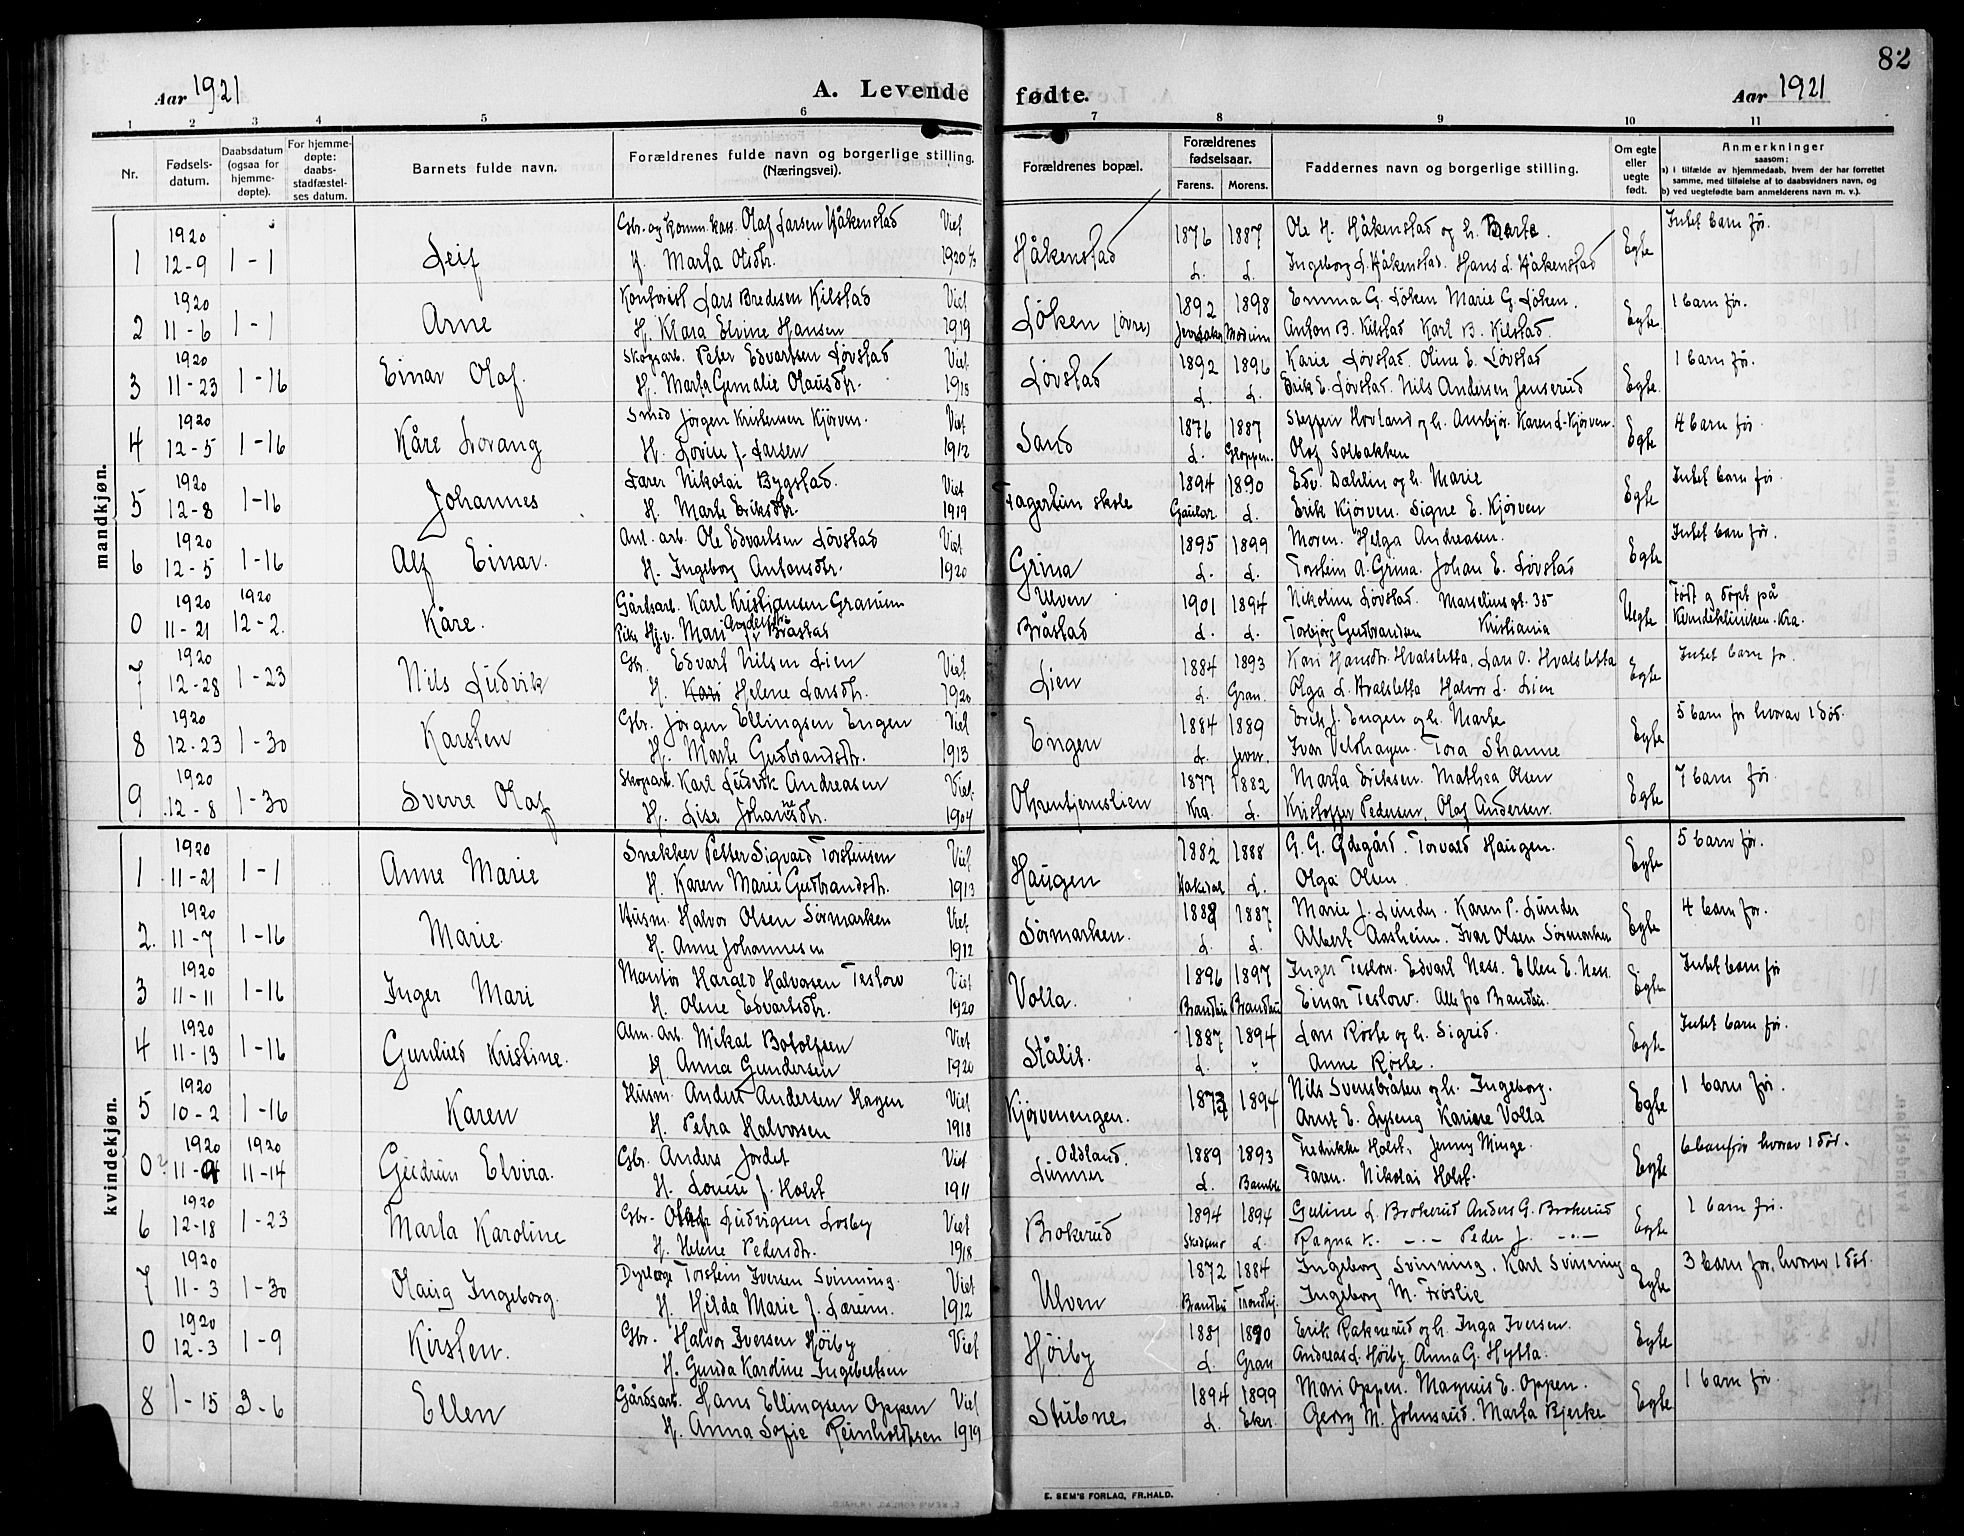 82
Aar 1921
A. Levende fødte.
Aar 1921
1 2 3 4 5 6 7 8 9 10 11
Nr.
Fødsels-datum.
Daabsdatum (ogsaa for hjemme-døpte).
For hjemme-døpte: daabs-stadfæstel-ses datum.
Barnets fulde navn.
Forældrenes fulde navn og borgerlige stilling. (Næringsvei).
Forældrenes bopæl.
Forældrenes fødselsaar.
Farens. Morens.
Faddernes navn og borgerlige stilling.
Om egte eller uegte født.
Anmerkninger
saasom:
a) i tilfælde av hjemmedaab, hvem der har forrettet samme, med tilføielse af to daabsvidners navn, og
b) ved uegtefødte barn anmelderens navn m. v.).
mandkjøn.
1920 Gbr. og Komm. kass. Olaf Larsen Håkenstad Viet 1876 1887 Ole H. Håkenstad og h. Marte. Intet barn før.
1 12-9 1-1 Leif H. Marta Olsdtr. 1920 Håkenstad L. L. Ingeborg L. Håkenstad. Hans L. Håkenstad Egte
1920 Lars Bredesen Kilstad Viet 1892 1898 Emma G. Løken Marie G. Løken. 1 barn før.
2 11-6 1-1 Arne H. Klara Elvine Hansen 1919 Løken (øvre) Jevnaker Modum Anton B. Kilstad Karl B. Kilstad. Egte
1920 Skogsarb. Peter Edvartsen Løvstad Viet 1892 1896 Karie Løvstad Oline E. Løvstad 1 barn før.
3 11-23 1-16 Einar Olaf. H. Marta Gemalie Olausdtr. 1918 Løvstad L. L. Erik E. Løvstad. Nils Andersen Jenserud Egte.
1920 Smed Jørgen Kristensen Kjørven. Viet 1876 1887 Hovland og h. Karen L. Kjørven. 4 barn før.
4 12-5 1-16 Kåre Lovang H. Lovise J. Larsen 1912 Sand L. Gloppen. Olaf Solbakken Egte
1920 Lærer Nikolai Bygstad. Viet 1894 1890 Edv. Dahlin og h. Marie Intet barn før.
5 12-8 1-16 Johannes H. Marte Eriksdtr. 1919 Fagertun skole Gaular L. Erik Kjørven. Signe E. Kjørven Egte
1920 Anl. arb. Ole Edvartsen Løvstad Viet 1895 1899 Moren. Helga Andreasen. Intet barn før.
6 12-5 1-16 Alf Einar. H. Ingeborg Antonsdtr. 1920 Grina L. L. Torstein A. Grina. Johan E. Løvstad Egte
1920 1920 Gårdsarb. Karl Kristiansen Granum Ulven 1901 1894 Nikoline Løvstad. Marseliusgt. 35 Født og døpt på
0 11-21 12-2. Kåre. Pike Hj.v. Mari Andersdtr. Bråstad Bråstad L. L. Torbjørg Gudbrandsen Kristiania Uegte Kvindekliniken. Kra.
1920 Gbr. Edvart Nilsen Lien Viet 1884 1893 Kari Hansdtr. Hvalsletta, Lars O. Hvalsletta Intet barn før.
7 12-28 1-23 Nils Ludvik H. Kari Helene Larsdtr. 1920 Lien L. Gran. Olga L. Hvalsletta Halvor L. Lien Egte
1920 Gbr. Jørgen Ellingsen Engen Viet 1884 1889 Erik J. Engen og h. Marte 5 barn før hvorav 1 død.
8 12-23 1-30 Karsten H. Marte Gudbrandsdtr. 1913 Engen L. Jevn. Ivar Velohagen. Tora Stranne Egte
1920 Skogsarb. Karl Ludvik Andreasen Viet. 1877 1882 Marta Eriksen. Mathea Olsen 7 barn før.
9 12-8 1-30 Sverre Olaf H. Lise Johannesdtr. 1904 Kra. L. Kristoffer Pedersen, Olaf Andersen. Egte
kvindekjøn.
1920 Snekker Petter Sigvard Torstensen Viet 1882 1888 G. G. Ødegård. Torvald Haugen. 5 barn før.
1 11-21 1-1 Anne Marie H. Karen Marie Gudbrandsdtr. 1913 Haugen Hakedal L. Olga Olsen. Egte
1920 Husm. Halvor Olsen Sørmarken Viet 1888 1887 Marie J. Lunder. Karen P. Lunder 4 barn før.
2. 11-7 1-16 Marie. H. Anne Johannesen 1912 Sørmarken. L. L. Albert Aasheim. Ivar Olsen Sørmarken Egte
1920 Montør Harald Halvorsen Teslow Viet 1896 1897 Inger Teslow. Edvart Ness. Ellen E. Ness. Intet barn før
3 11-11 1-16 Inger Mari H. Oline Edvartsdtr. 1920 Volla. Brandbu Brandbu Einar Teslow. Alle fra Brandbu. Egte
1920 Alm. arb. Mikal Botolfsen Viet 1887 1894 Lars Røste og h. Sigrid. Intet barn før.
4 11-13 1-16 Gunhild Kristine. H. Anna Gundersen 1920 L. " Anne Røste. Egte
1920 Husm. Anders Andersen Hagen Viet 1894 Nils Svensbråten og h. Ingeborg. 1 barn før.
5 10-2 1-16 Karen H. Petra Halvorsen 1918 Kjørvenengen. Arnt E. Lyseng Karine Volla Egte
1920 1920 Gbr. Anders Jordet Viet Oddland. 1889 1893 Fredrikke Holst, Jenny Minge. 6 barn før hvorav 1 død.
0 11-9 11-14 Gudrun Elvira. H. Lovise J. Holst 1911 Lunner L. Bamble Faren. Nikolai Holst. Egte
1920 Gbr. Olaf Ludvigsen Losby Viet 1894 1894 Guline L. Brokerud Anders G. Brokerud 1 barn før.
6 12-18 1-23 Marta Karoline H. Helene Pedersdtr. 1918 Brokerud Skedsmo L. Ragna K. -"- Peder J. -"- Egte
1920 Dyrlæge Torstein Iversen Svinning. Viet 1872 1884 Ingeborg Svinning. Karl Svinning 3 barn før, hvorav 1 død.
7 11-3 1-30 Olaug Ingeborg. H. Hilda Marie J. Larum. 1912 Ulven Brandbu Trondhj. Ingeborg M. Frøslie Egte
1920 Gbr. Halvor Iversen Høiby Viet 1881 1890 Erik Raknerud og h. Inga Iversen.
0 12-3 1-9 Kirsten. H. Gunda Karoline Ingebretsen Høiby L. Gran Andreas L. Høiby. Anna G. Hytta. Egte
Gårdsarb. Hans Ellingsen Oppen Viet 1894 1899 Mari Oppen. Magnus E. Oppen. 1 barn før.
8 1-15 3-6 Ellen H. Anna Sofie Reinholdtsen 1919 Stubne L. Eker. Georg M. Johnsrud. Marta Bjerke Egte
E. SEM'S FORLAG, FR.HALD.